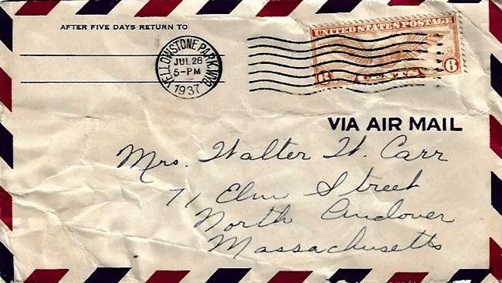 AFTER FIVE DAYS RETURN TO
YELLOWSTONE PARK, WYO.
JUL 28
5-PM
1937
UNITED STATES POSTAGE
6 CENTS 6
VIA AIR MAIL
Mrs. Walter W. Carr
71 Elm Street
North Andover
Massachusetts